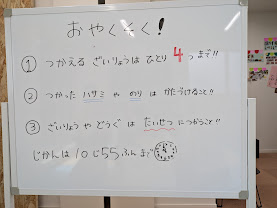 おやくそく!
① つかえる ざいりょうは ひとり 4つまで!!
② つかった ハサミ や のり は かたづけること!!
③ ざいりょう や どうぐ は たいせつ につかうこと!!
じかんは 10じ55ふんまで